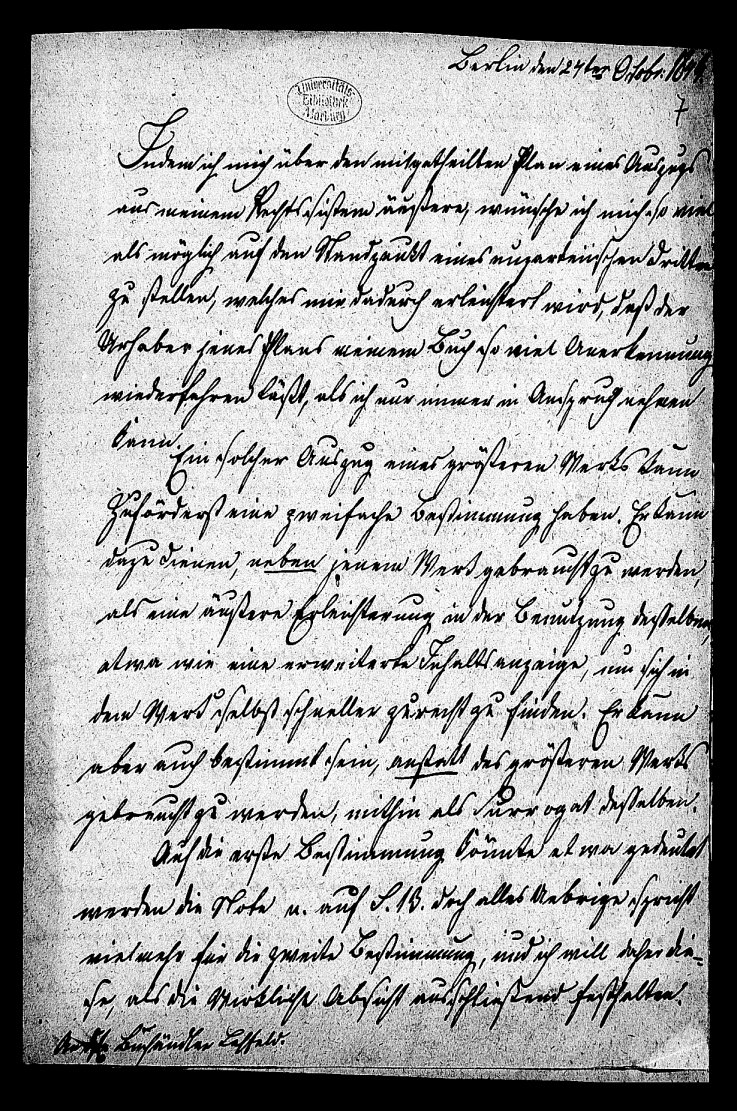 Berlin den 27ten Octobr.
7
Universitäts-
Bibliothek
Marburg
Indem ich mich über den mitgetheilten Plan eines Auszugs
aus meinem Rechtssistem äußere, wünsche ich mich so viel
als möglich auf den Standpunkt eines unparteiischen Dritten
zu stellen, welches mir dadurch erleichtert wird, daß der
Urheber jenes Plans meinem Buch so viel Anerkennung
wiederfahren läßt, als ich nur immer in Anspruch nehmen
kann.
Ein solcher Auszug eines größeren Werks kann
zuförderst eine zweifache Bestimmung haben. Er kann
dazu dienen, neben jenem Werk gebraucht zu werden,
als eine äußere Erleichterung in der Benutzung desselben,
etwa wie eine erweiterte Inhaltsanzeige, um sich in
dem Werk selbst schneller zurecht zu finden. Er kann
aber auch bestimmt sein, anstatt des größeren Werks
gebraucht zu werden, mithin als Surrogat desselben.
Auf die erste Bestimmung könnte etwa gedeutet
werden die Note n. auf S. 13. doch alles Uebrige spricht
vielmehr für die zweite Bestimmung, und ich will daher die-
se, als die wirkliche Absicht ausschließend festhalten.
Buchhändler Lehfeld.